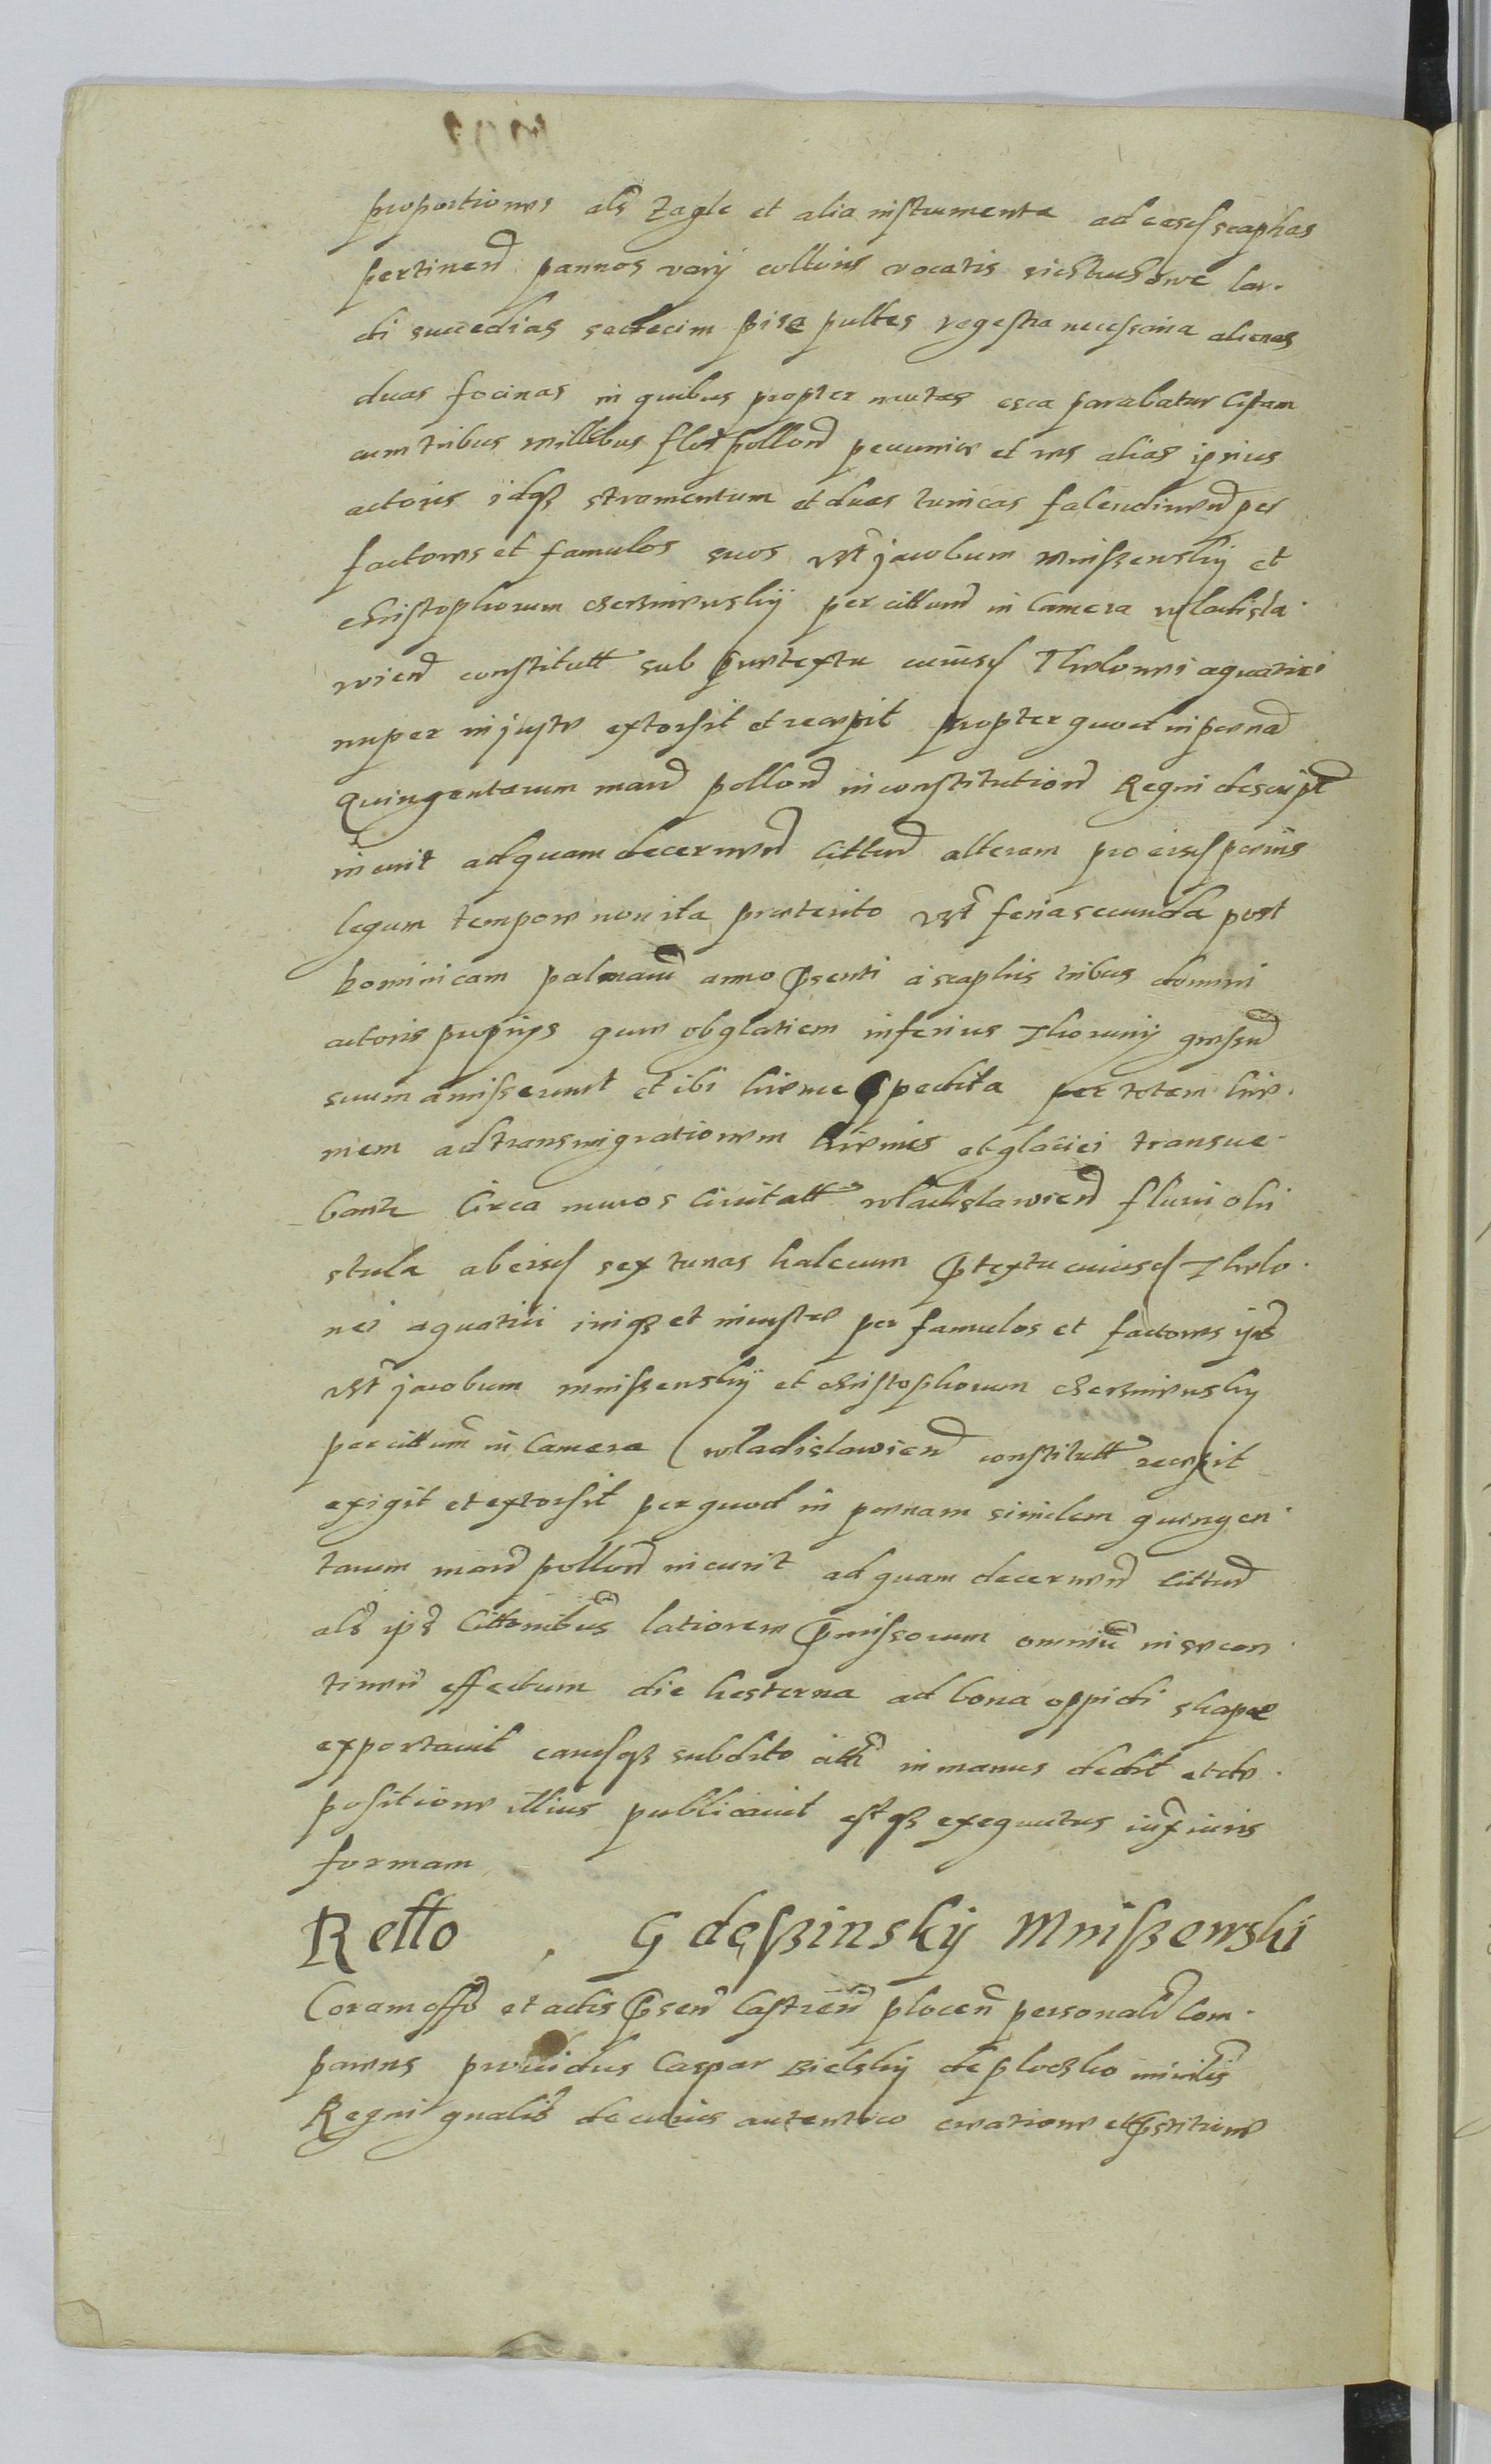 proportiones als zagle et alia instrumenta ad easd scaphas
pertinen pannos varij colloris vocatis lar-
di succedias sedecim pisa pultes regestra necessaria alienas
duas focinas in quibus propter nautas esca parabatur Cistam
cum tribus millibus flor pollon pecuniae et res alias ipsius
actoris idq stramentum et duas tunicas falendinen per
factores et famulos suos vst jacobum mniszenskij et
christophorum per cittum in Camera wladisla-
wien constitutt sub praetextu cuiusd Theolonei aquatici
nuper injuste extorsit et recepit propter quod in poena
quingentarum marc pollon in constitution Regni descript
incurit ad quam decernen Cittum alteram pro eisd poenis
legum tempore non ita praeterito vst feria secunda post
dominicam palmarum anno psenti a scaphis tribus domini
actoris proprijs quae ob glatiem inferius Thorunij gressum
suum amisserunt et ibi hieme pedita per totam hie-
mem ad transmigrationem hiemis et glaciei transue-
bant Circa muros Civitatt wladislawien fluvio Vi
stula ab eisd sex tunas halecum ptextu cuiusd Theolo-
nei aquatici iniq et iniuste per famulos et factores ips
vst jacobum mniszenskij et christophorum
per cittum in Camera wladislawien constitutt recepit
exigit et extorsit per quod in poenam similem quingen-
tarum marc pollon incurit ad quam decernen cittum
als ips Cittonibus latiorem pmissorum omniu in se con-
tinen effectum die hesterna ad bona oppidi skape
exportavit easq subdito ibi in manus dedit et de
positione illius publicavit estq exequutus iux iuris
formam
Retto G deszinskij Mniszewski
Coram offo et actis psen Castren plocen personalr Com-
parens providus Caspar Bielskij de ploczko minilis
Regni gnalis de cuius autentico creatione et pstitione